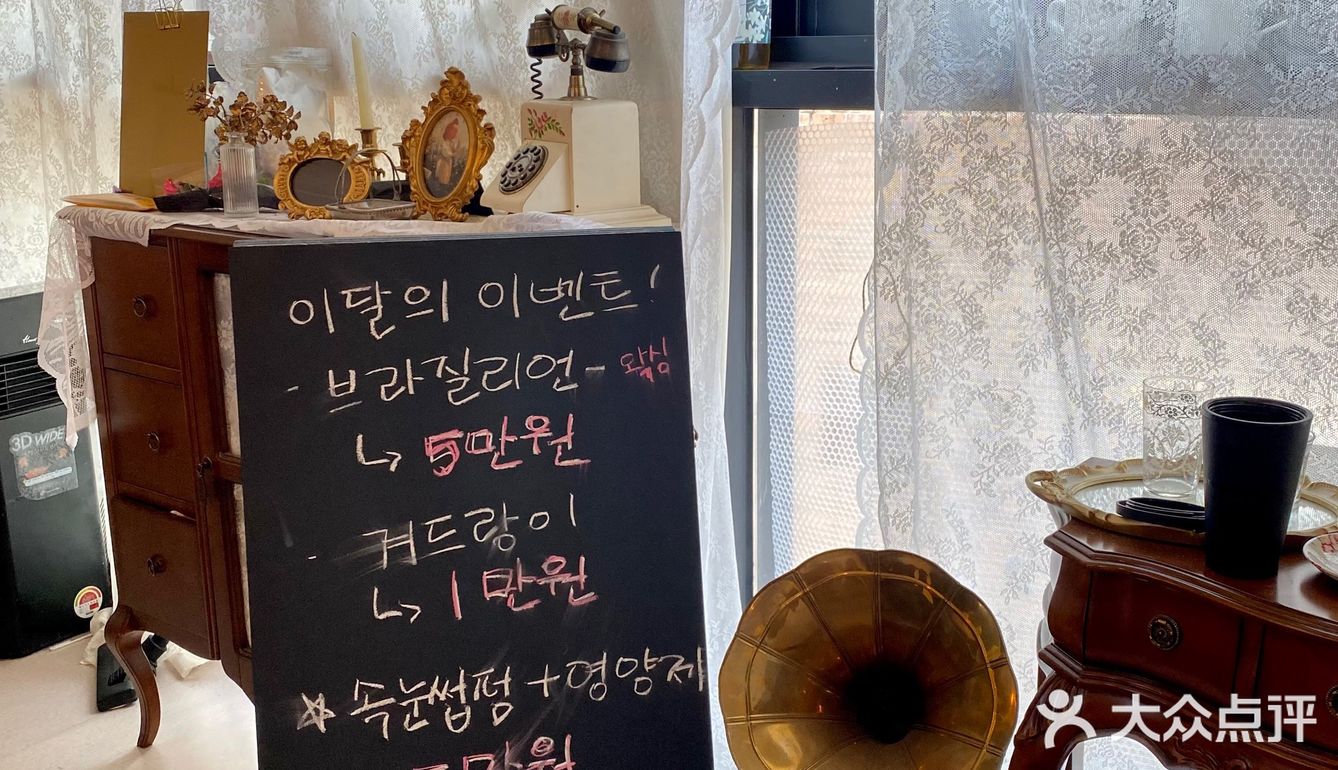 이달의 이벤트!
- 브라질리언 - 왁싱
↳ 5만원
- 겨드랑이
↳ 1만원
☆ 속눈썹펌 + 영양제
만원
3D WIDE
大众点评